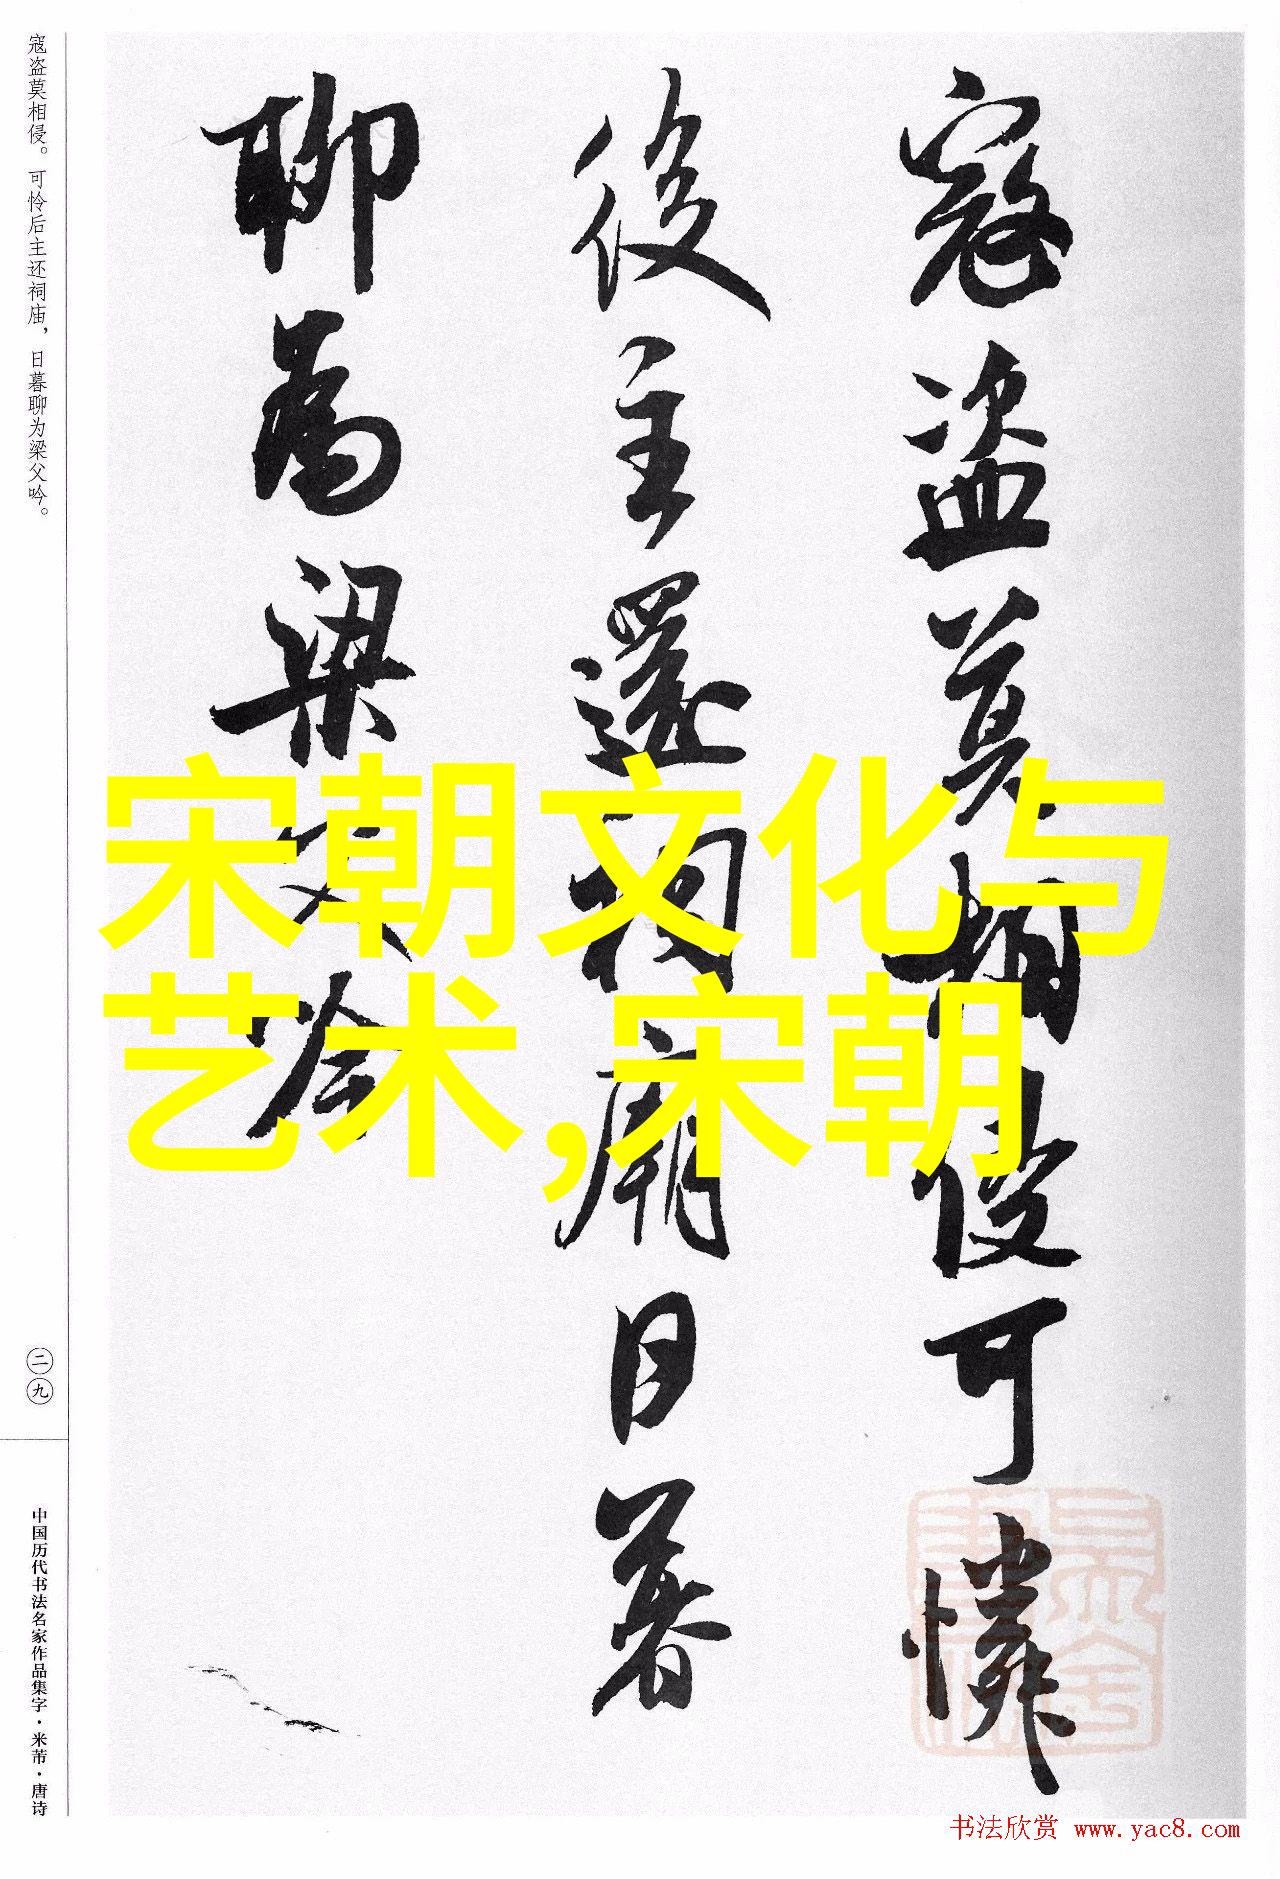 寇盗莫相侵可憐
後主還祠廟日暮
聊為梁父吟
宋朝文化与
艺术,宋朝
寇盗莫相侵。可怜后主还祠庙，日暮聊为梁父吟。
二九
中国历代书法名家作品集字·米芾·唐诗
书法欣赏 www.yac8.com